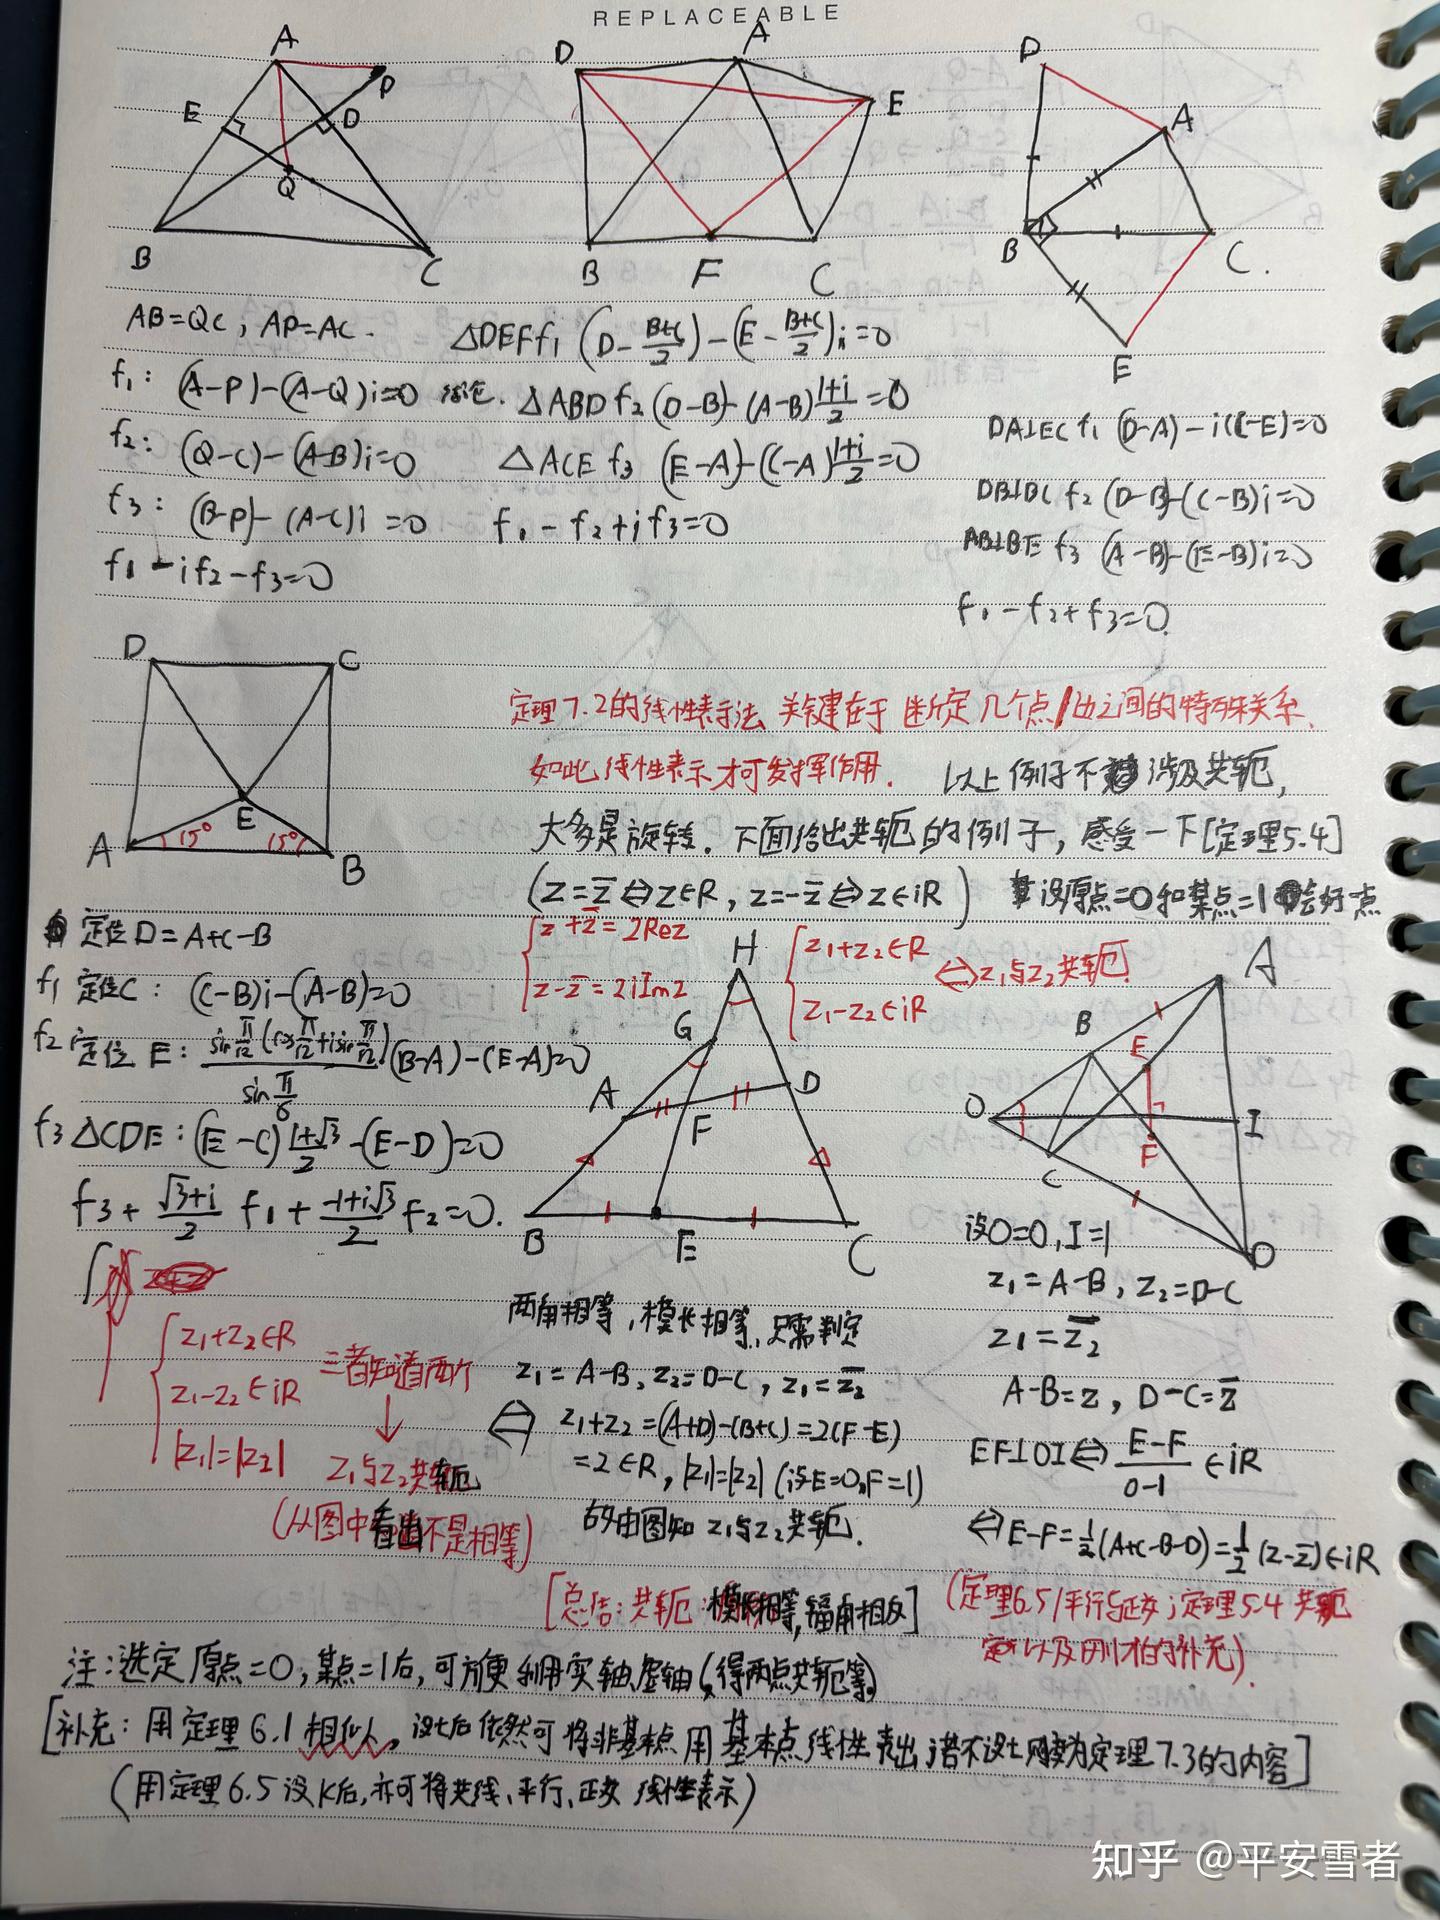 REPLACEABLE
A
P
E
D
Q
B
C
D
A
E
B
F
C
D
A
B
C.
E
AB=QC, AP=AC.
f₁: (A-P)-(A-Q)i=0 结论.
f₂: (Q-C)-(A-B)i=0
f₃: (B-P)-(A-C)i=0
f₁-if₂-f₃=0
△DEF f₁ (D-\frac{B+C}{2})-(E-\frac{B+C}{2})i=0
△ABD f₂ (D-B)-(A-B)\frac{1+i}{2}=0
△ACE f₃ (E-A)-(C-A)\frac{1+i}{2}=0
f₁-f₂+if₃=0
DA⊥EC f₁ (D-A)-i(C-E)=0
DB⊥BC f₂ (D-B)-(C-B)i=0
AB⊥BE f₃ (A-B)-(E-B)i=0
f₁-f₂+f₃=0.
D
C
E
A
15°
15°
B
定理7.2的线性表示法 关键在于 断定几个点/边之间的特殊关系.
如此线性表示才可发挥作用. 以上例子不涉及共轭,
大多是旋转. 下面给出共轭的例子, 感受一下[定理5.4]
(z=z̄⇔z∈R, z=-z̄⇔z∈iR) 设原点=0和某点=1会好一点
{z+z̄=2Rez
z-z̄=2iImz
{z₁+z₂∈R
z₁-z₂∈iR
⇔z₁与z₂共轭.
定位D=A+C-B
f₁ 定位C: (C-B)i-(A-B)=0
f₂ 定位E: \frac{sin\frac{π}{12}(cos\frac{π}{12}+isin\frac{π}{12})}{sin\frac{π}{6}}(B-A)-(E-A)=0
f₃ △CDE: (E-C)\frac{1+√3}{2}-(E-D)=0
f₃+\frac{√3+i}{2}f₁+\frac{-1+i√3}{2}f₂=0.
H
G
A
D
F
B
E
C
A
B
E
O
I
F
C
D
{z₁+z₂∈R
z₁-z₂∈iR
|z₁|=|z₂|
三者知道两个
↓
z₁与z₂共轭
(从图中看出不是相等)
两角相等, 模长相等, 只需判定
z₁=A-B, z₂=D-C, z₁=z̄₂
⇔ z₁+z₂=(A+D)-(B+C)=2(F-E)
=2∈R, |z₁|=|z₂| (设E=0,F=1)
故由图知 z₁与z₂共轭.
[总结:共轭:模长相等,辐角相反]
设O=0, I=1
z₁=A-B, z₂=D-C
z₁=z̄₂
A-B=z, D-C=z̄
EF⊥OI⇔\frac{E-F}{0-1}∈iR
⇔E-F=\frac{1}{2}(A+C-B-D)=\frac{1}{2}(z-z̄)∈iR
(定理6.5/平行与正交;定理5.4共轭
以及刚才的补充).
注:选定原点=0,某点=1后,可方便利用实轴、虚轴(得两点共轭等)
[补充:用定理6.1相似, 设t后依然可将非基本点用基本点线性表出;若不设t则变为定理7.3的内容]
(用定理6.5设k后,亦可将共线、平行、正交 线性表示)
知乎 @平安雪者